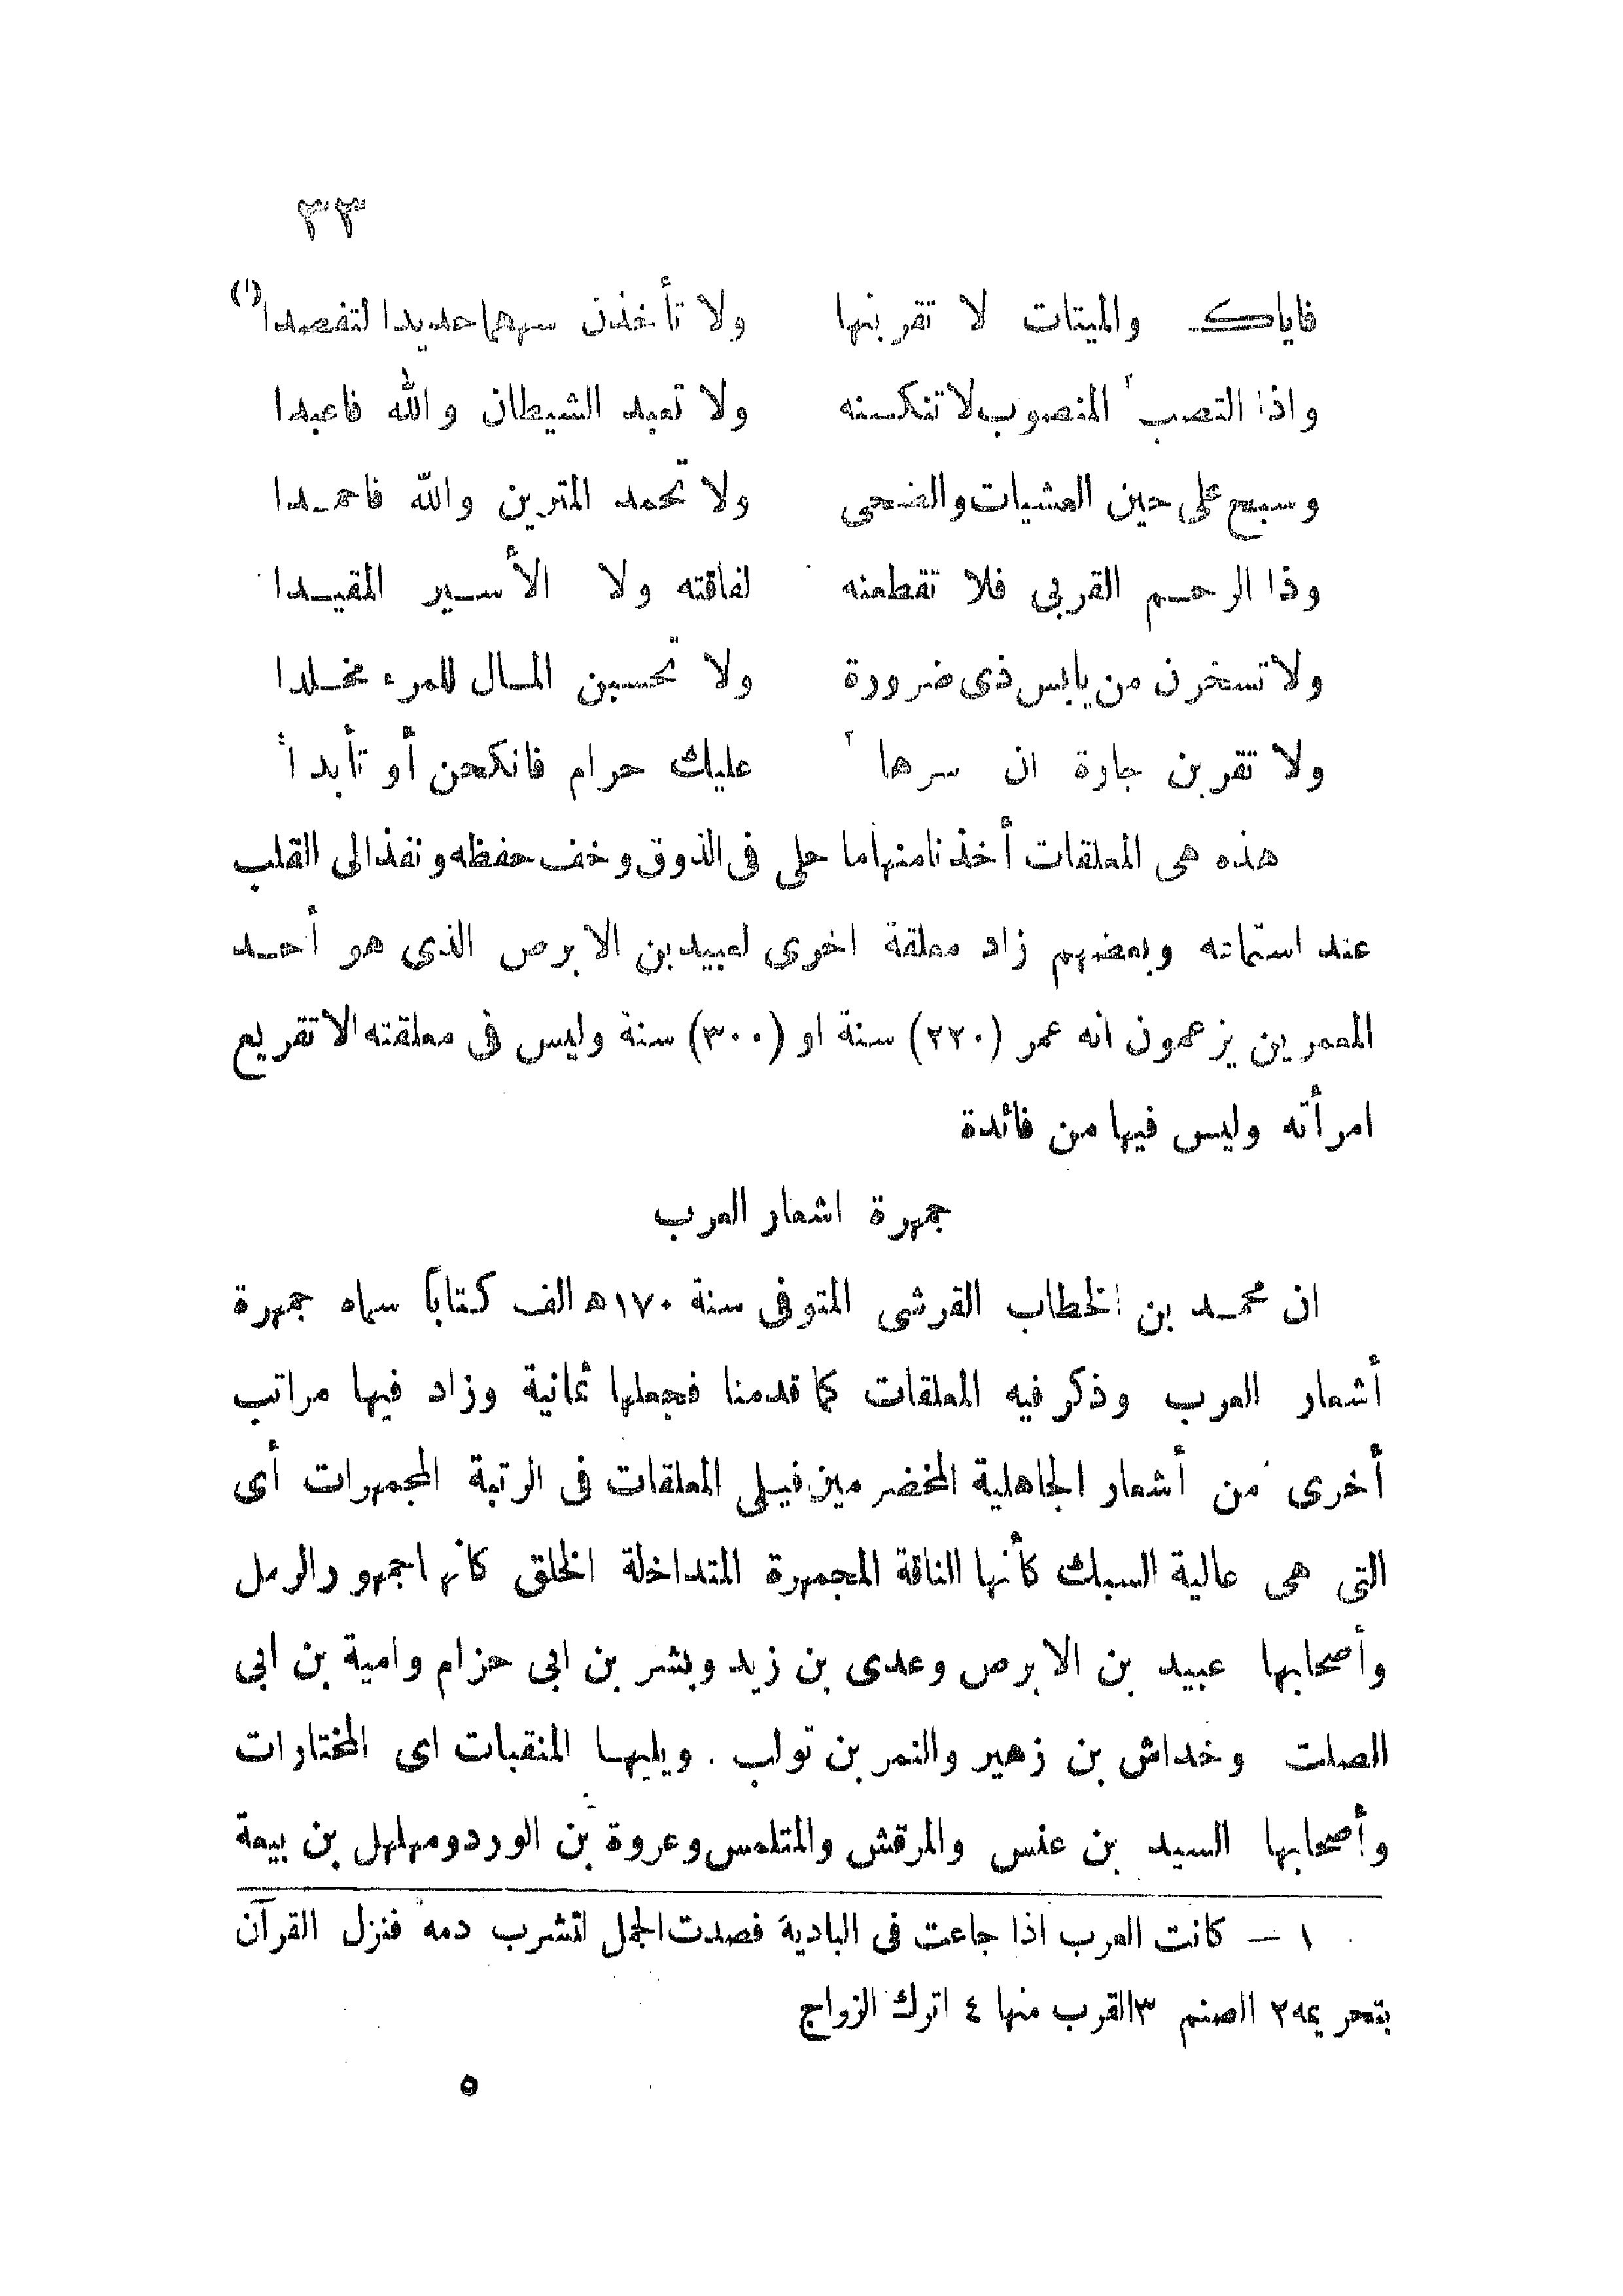 ٣٣
فاياك والميتات لا تقربنها ولا تأخذن سهما حديدا لتفصدا (١)
واذا النصب ٢ المنصوب لا تنكسنه ولا تعبد الشيطان والله فاعبدا
وسبح على حين العشيات والضحى ولا تحمد المترين والله فاحمدا
وذا الرحم القربى فلا تقطعنه لفاقته ولا الأسير المقيدا
ولا تسخرن من يابس ذى ضرورة ولا تحسبن المال للمرء مخلدا
ولا تقربن جارة ان سرها عليك حرام فانكحن أو تأبدا
هذه هى المعلقات أخذنا منها ما حلى فى الذوق وخف حفظه ونفذ الى القلب
عند استماته وبعضهم زاد معلقة اخرى لعبيد بن الابرص الذى هو أحد
المعمرين يزعمون انه عمر (٢٢٠) سنة او (٣٠٠) سنة وليس فى معلقته الا تقريع
امرأته وليس فيها من فائدة
جمهرة اشعار العرب
ان محمد بن الخطاب القرشى المتوفى سنة ١٧٠ هـ الف كتاباً سماه جمهرة
أشعار العرب وذكر فيه المعلقات كما قدمنا فجعلها ثمانية وزاد فيها مراتب
أخرى من أشعار الجاهلية المخضرمين فيلى المعلقات فى الرتبة المجمهرات أى
التى هى عالية السبك كأنها الناقة المجمهرة المتداخلة الخلق كانها جمهور الرمل
وأصحابها عبيد بن الابرص وعدى بن زيد وبشر بن ابى حزام وامية بن ابى
الصلت وخداش بن زهير والنمر بن تولب . ويليها المنقبات اى المختارات
وأصحابها السيد بن عنس والمرقش والمتلمس وعروة بن الورد ومهلهل بن بيعة
١ — كانت العرب اذا جاعت فى البادية فصدت الجمل لتشرب دمه فنزل القرآن
بتحريمه ٢ الصنم ٣ القرب منها ٤ اترك الزواج
٥